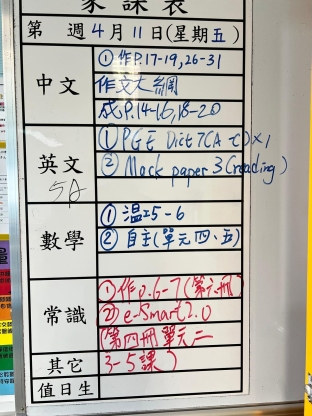 家課表
第 週4月11日(星期五)
中文
①作P.17-19,26-31
作文大綱
成P.14-16,18-20
英文
5A
①PGE Dict 7(A-C)×1
②Mock paper 3(reading)
數學
①溫5-6
②自主(單元四、五)
常識
①作p.6-7(第六冊)
②e-Smart2.0
(第四冊單元二
其它
3-5課)
值日生